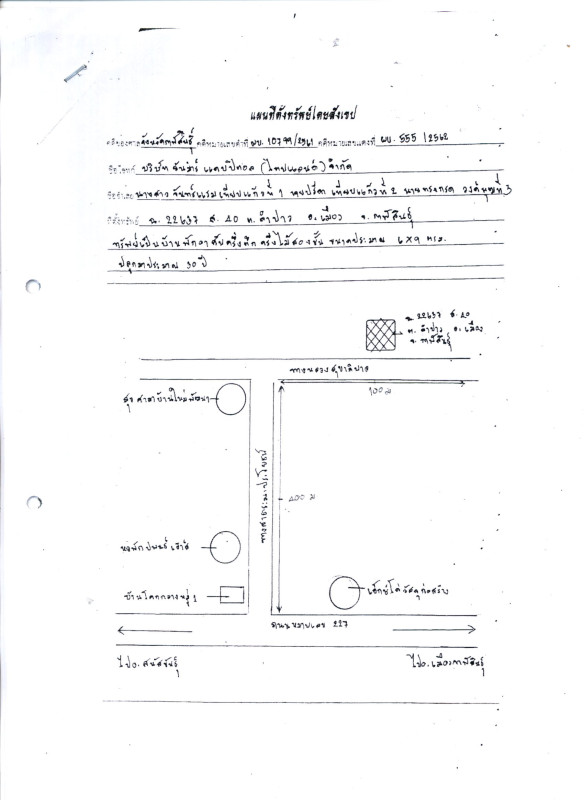 แผนที่ตั้งทรัพย์โดยสังเขป
คดีของศาลจังหวัดกาฬสินธุ์ คดีหมายเลขดำที่ ผบ. 10799/2561 คดีหมายเลขแดงที่ ผบ. 555 /2562
ชื่อโจทก์ บริษัท จันวาร์ แคปปิทอล (ไทยแลนด์) จำกัด
ชื่อจำเลย นางสาว จันทร์แรม เทียบแก้ว ที่ 1 เทียบแก้ว ที่ 2 นาย ที่ 3
ที่ตั้งทรัพย์ น. 22637 ต. ลำปาว อ. เมือง จ. กาฬสินธุ์
ทรัพย์เป็นบ้านพักอาศัยครึ่งตึก ครึ่งไม้สองชั้น ขนาดประมาณ 6x9 เมตร
ปลูกมาประมาณ 30 ปี
น. 22637
ต. ลำปาว อ. เมือง
จ. กาฬสินธุ์
ทางหลวงสุขาภิบาล
100 ม
สุขศาลาบ้านใหม่พัฒนา
ทางสาธารณะประโยชน์
400 ม
หอพัก
บ้านโคกกลางหมู่ 1
วัสดุก่อสร้าง
ถนนหมายเลข 227
ไปอ. สหัสขันธ์
ไปอ. เมืองกาฬสินธุ์